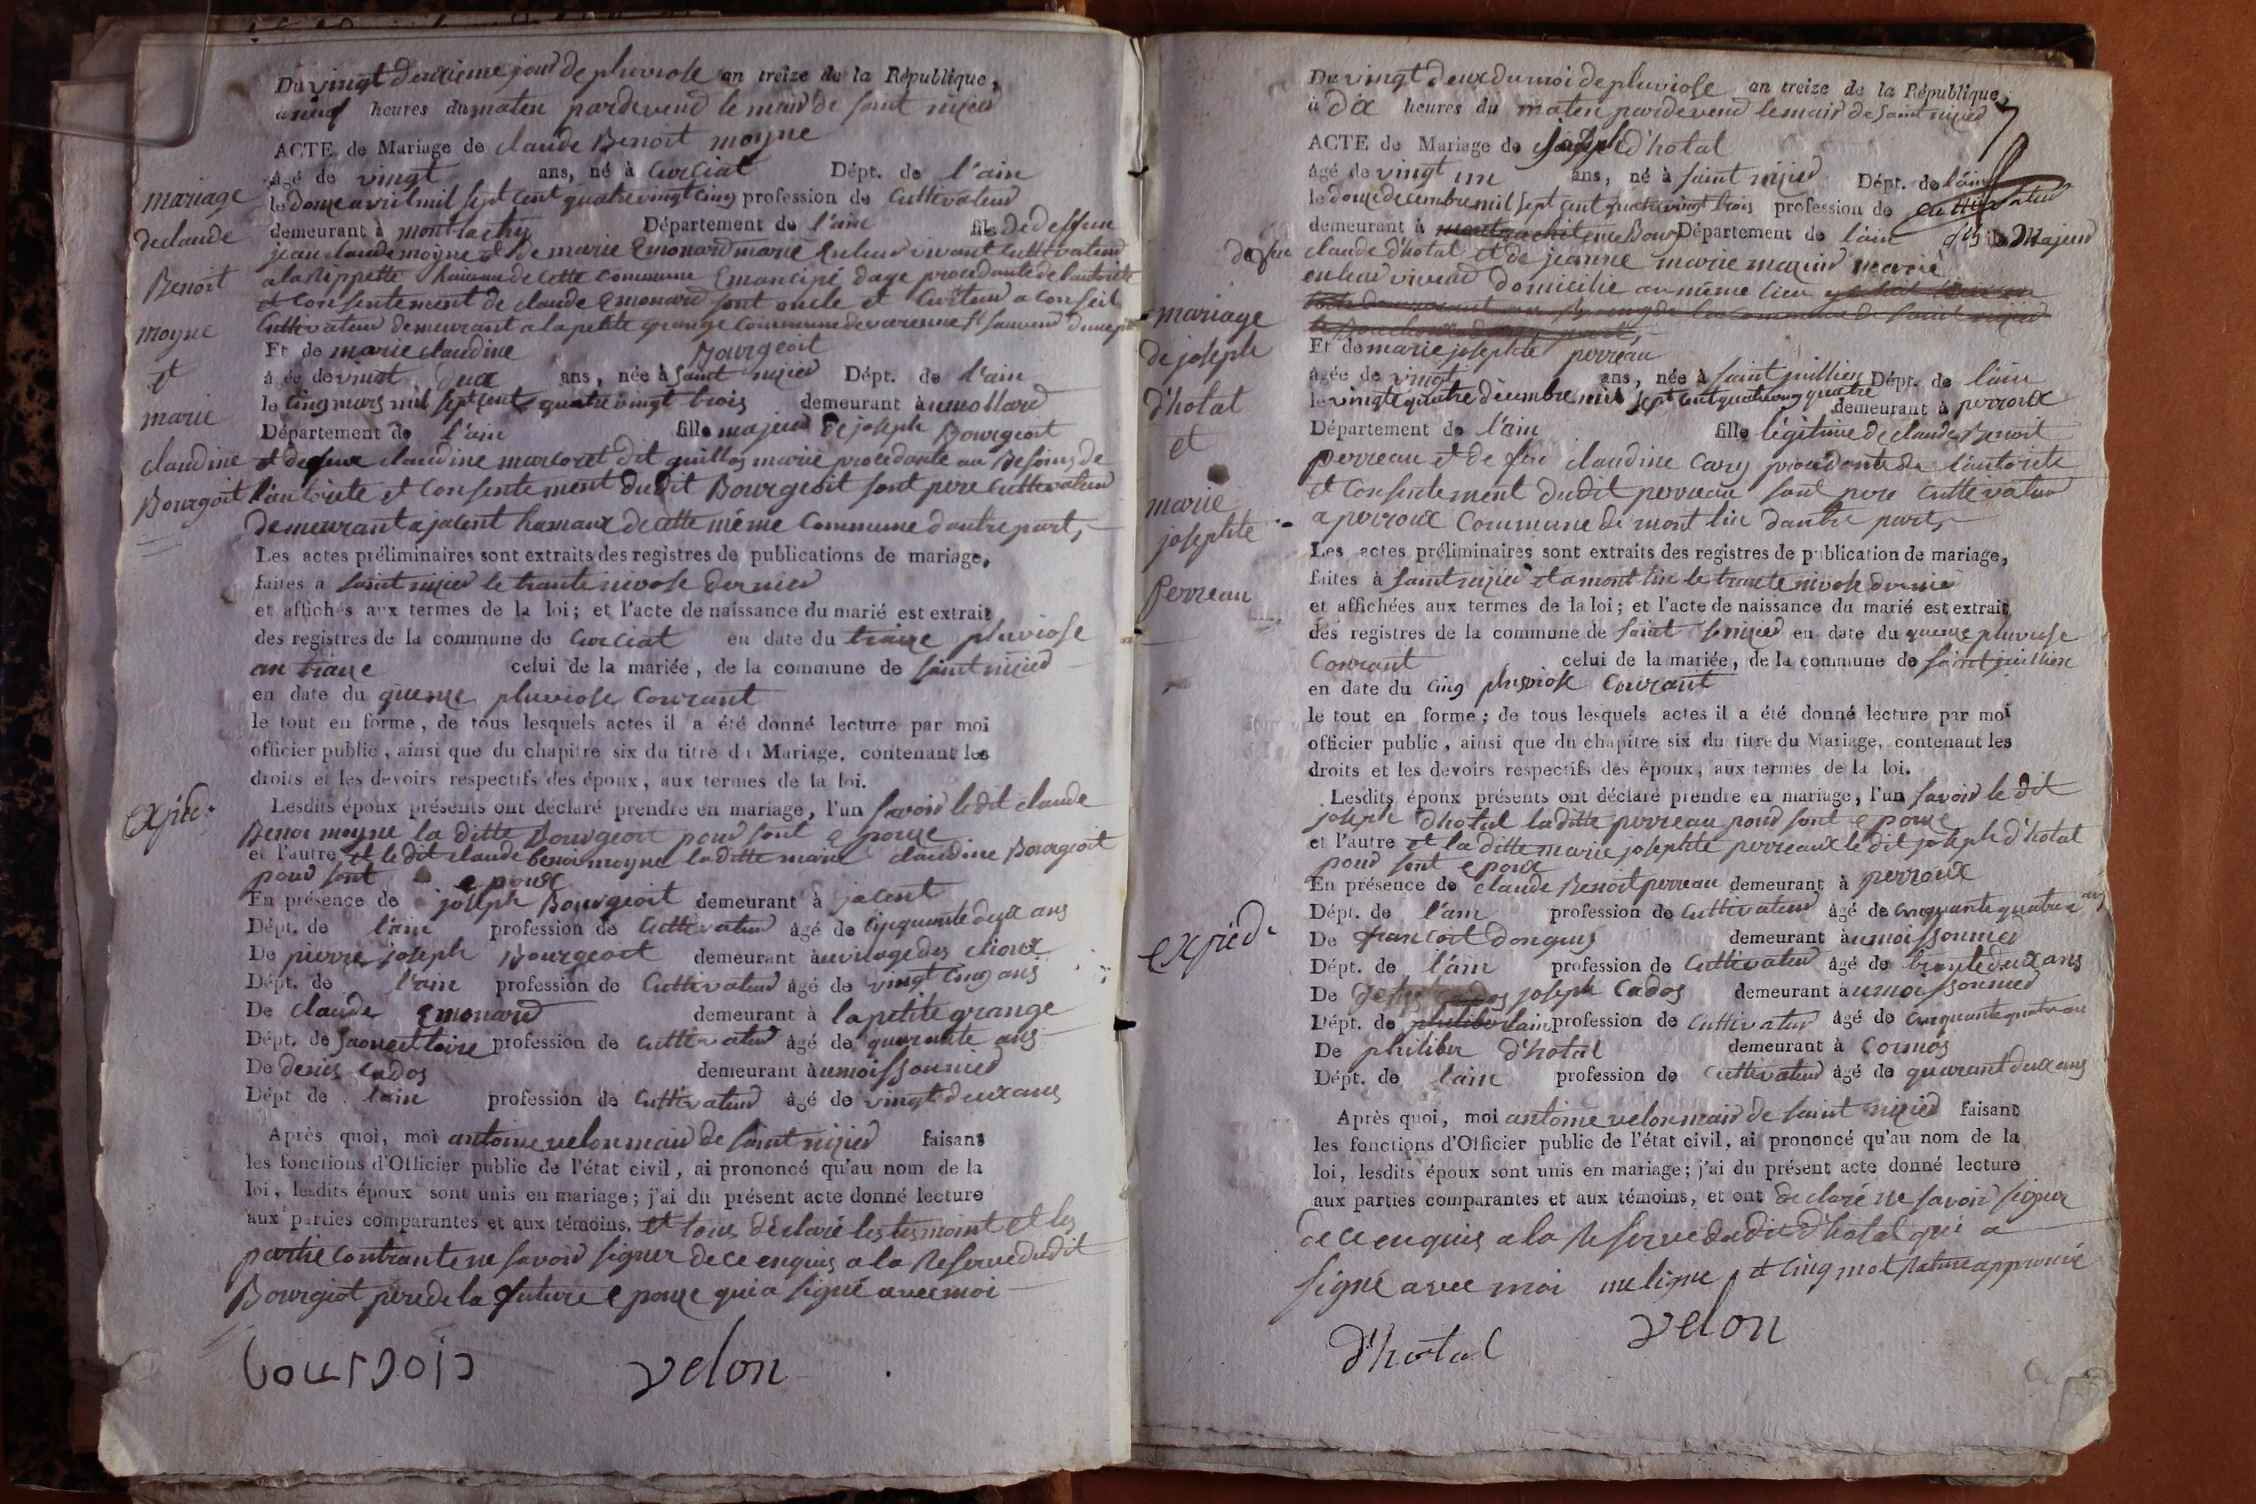 Du vingt deuxieme jour de pluviose an treize de la République,
a neuf heures du maten pardevend le maid de saint nizied
ACTE de Mariage de claude Benoit moyne
âgé de vingt ans, né à Curciat Dépt. de l'ain
le douze avril mil sept cent quatre vingt cinq profession de Cultivateur
demeurant à montlachy Département de l'ain fils de deffun
jean claude moyne et de marie Emonard marié en leur vivant Cultivateur
a la Rippette hameau de Cette Commune Emancipé dage procedante de l'autorité
et Consentement de claude Emonard sont oncle et Curateur a Conseil
Cultivateur demeurant a la petite grange Commune de varenne st sauveur dune part
Et de marie claudine Bourgeoit
âgée de vingt deux ans, née à Saint nizied Dépt. de l'ain
le Cinq mars mil sept cent quatre vingt trois demeurant à umollard
Département de l'ain fille majeur de joseph Bourgeoit
et defeue claudine marcoret dit guillos marie procedante au Besoins de
l'autorité et Consentement dudit Bourgeoit sont pere Cultivateur
demeurant a jacent hamaux de cette même Commune d'autre part,
Les actes préliminaires sont extraits des registres de publications de mariage,
faites a saint nizied le trante nivose dernier
et affichés aux termes de la loi; et l'acte de naissance du marié est extrait
des registres de la commune de Curciat en date du traize pluviose
an traize celui de la mariée, de la commune de saint nizied
en date du quenze pluviose Courant
le tout en forme, de tous lesquels actes il a été donné lecture par moi
officier public, ainsi que du chapitre six du titre du Mariage, contenant les
droits et les devoirs respectifs des époux, aux termes de la loi.
Lesdits époux présents ont déclaré prendre en mariage, l'un savoir le dit claude
Benoi moyne la ditte Bourgeoit pour sont epouze
et l'autre et le dit claude benoi moyne la ditte marie claudine Bourgeoit
pour sont epoux
En présence de joseph Bourgeoit demeurant à jacent
Dépt. de l'ain profession de Cultivateur âgé de Cinquante deux ans
De pierre joseph Bourgeoit demeurant à uvilage des choux
Dépt. de l'ain profession de Cultivateur âgé de vingt Cinq ans
De claude Emonard demeurant à la petite grange
Dépt. de Saone et loire profession de Cultivateur âgé de quarante ans
De denis Cados demeurant à umoissonnied
Dépt de l'ain profession de Cultivateur âgé de vingt deux ans
Après quoi, moi antoine velon maid de saint nizied faisant
les fonctions d'Officier public de l'état civil, ai prononcé qu'au nom de la
loi, lesdits époux sont unis en mariage; j'ai du présent acte donné lecture
aux parties comparantes et aux témoins, et tous declaré les temoint et les
partie Contrante ne savoir signer de ce enquis a la Reserve dudit
Bourgiot pere de la future epouze qui a signé avec moi
bourgois velon
mariage
de claude
Benoit
moyne
et
marie
claudine
Bourgoit
expéd.
Du vingt deux du moi de pluviose an treize de la République,
à dix heures du maten pardevend le maid de saint nizied
ACTE de Mariage de joseph d'hotal
âgé de vingt un ans, né à saint nizied Dépt. de l'ain
le douze decembre mil sept cent quatre vingt trois profession de Cultivateur
demeurant à Département de l'ain fils Majeur
de feu claude d'hotal et de jeanne marie mazuir marié
en leur vivend domicilié au même lieu
Et de marie josephte perreau
âgée de vingt ans, née à saint juillien Dépt. de l'ain
le vingte quatre décembre mil sept cent quatre vingt quatre demeurant à perroux
Département de l'ain fille légitime de claude Benoit
perreau et de feu claudine Cary procedante de l'autorite
et Consentement dudit perreau sont pere Cultivateur
a perroux Commune de mont lin dautre part,
Les actes préliminaires sont extraits des registres de publication de mariage,
faites à saint nizied et a mont lin le trante nivose dernier
et affichées aux termes de la loi; et l'acte de naissance du marié est extrait
des registres de la commune de saint nizied en date du quenze pluviose
Courant celui de la mariée, de la commune de saint juillien
en date du Cinq pluviose Courant
le tout en forme; de tous lesquels actes il a été donné lecture par moi
officier public, ainsi que du chapitre six du titre du Mariage, contenant les
droits et les devoirs respectifs des époux, aux termes de la loi.
Lesdits époux présents ont déclaré prendre en mariage, l'un savoir le dit
joseph d'hotal la ditte perreau pour sont epouze
et l'autre et la ditte marie josephte perreaux le dit joseph d'hotal
pour sont epoux
En présence de claude Benoit perreau demeurant à perroux
Dépt. de l'ain profession de Cultivateur âgé de Cinquante quatre ans
De francoit donguis demeurant à umoissonnier
Dépt. de l'ain profession de Cultivateur âgé de trante deux ans
De joseph Cados demeurant à umoissonnied
Dépt. de l'ain profession de Cultivateur âgé de Cinquante quatre ans
De philiber d'hotal demeurant à Cormos
Dépt. de l'ain profession de Cultivateur âgé de quarant deux ans
Après quoi, moi antoine velon maid de saint nizied faisant
les fonctions d'Officier public de l'état civil, ai prononcé qu'au nom de la
loi, lesdits époux sont unis en mariage; j'ai du présent acte donné lecture
aux parties comparantes et aux témoins, et ont declaré ne savoir signer
de ce enquis a la Reserve dudit d'hotal qui a
signé avec moi une ligne et Cinq mot rature approuvé
d'hotal velon
mariage
de joseph
d'hotal
et
marie
josephte
perreau
expéd.